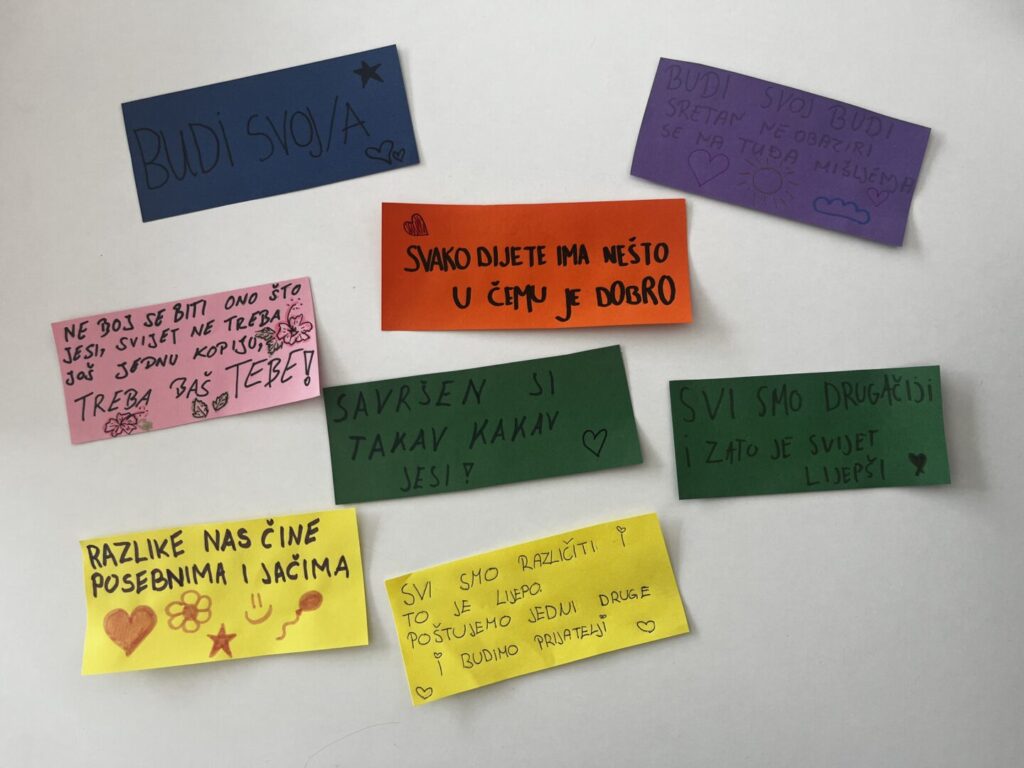 BUDI SVOJ/A
BUDI SVOJ BUDI
SRETAN NE OBAZIRI
SE NA TUĐA MIŠLJEMA
SVAKO DIJETE IMA NEŠTO
U ČEMU JE DOBRO
NE BOJ SE BITI ONO ŠTO
JESI, SVIJET NE TREBA
JOŠ JEDNU KOPIJU,
TREBA BAŠ TEBE!
SAVRŠEN SI
TAKAV KAKAV
JESI!
SVI SMO DRUGAČIJI
I ZATO JE SVIJET
LIJEPŠI
RAZLIKE NAS ČINE
POSEBNIMA I JAČIMA
SVI SMO RAZLIČITI I
TO JE LIJEPO.
POŠTUJEMO JEDNI DRUGE
I BUDIMO PRIJATELJI